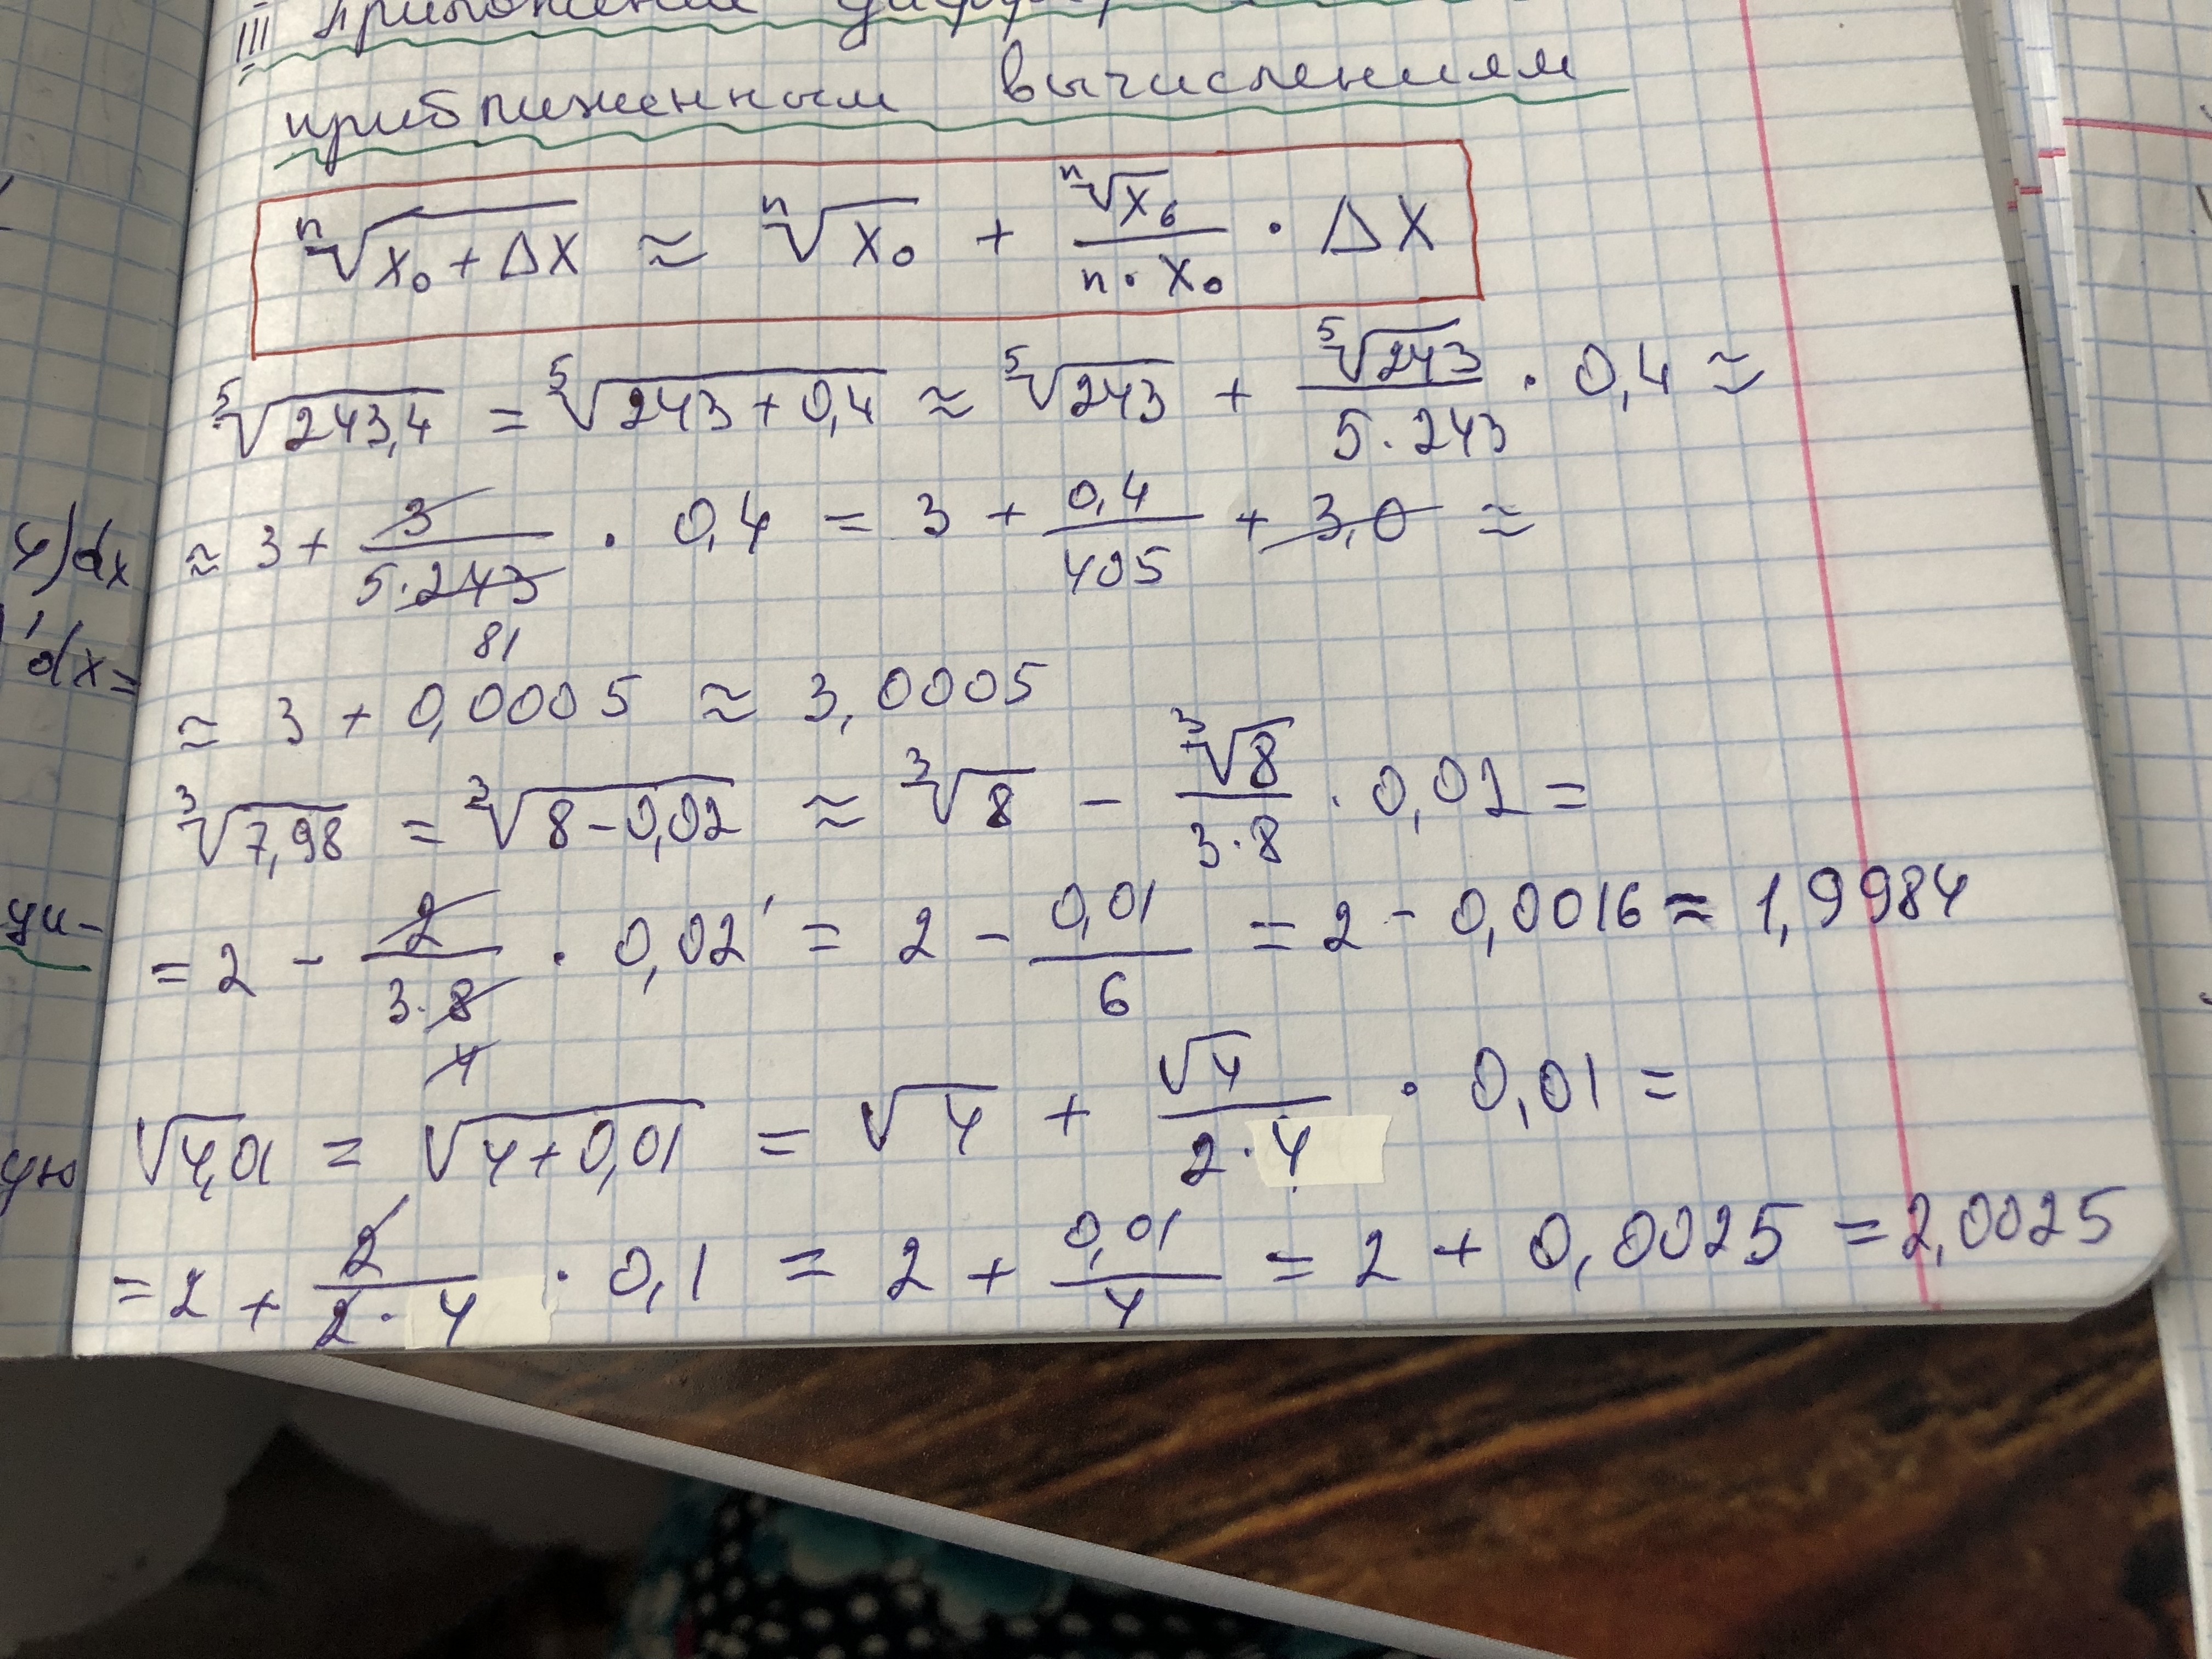 III Приложение
приближенным вычислениям
ⁿ√(x₀ + Δx) ≈ ⁿ√x₀ + ⁿ√x₀ / (n · x₀) · Δx
⁵√243,4 = ⁵√(243 + 0,4) ≈ ⁵√243 + ⁵√243 / (5 · 243) · 0,4 ≈
≈ 3 + 3 / (5 · 243) · 0,4 = 3 + 0,4 / 405 + 3,0 ≈
81
≈ 3 + 0,0005 ≈ 3,0005
³√7,98 = ³√(8 – 0,02) ≈ ³√8 – ³√8 / (3 · 8) · 0,02 =
= 2 – 2 / (3 · 8) · 0,02 = 2 – 0,01 / 6 = 2 – 0,0016 ≈ 1,9984
4
√4,01 = √(4 + 0,01) = √4 + √4 / (2 · 4) · 0,01 =
= 2 + 2 / (2 · 4) · 0,1 = 2 + 0,01 / 4 = 2 + 0,0025 = 2,0025
4)dx
dx=